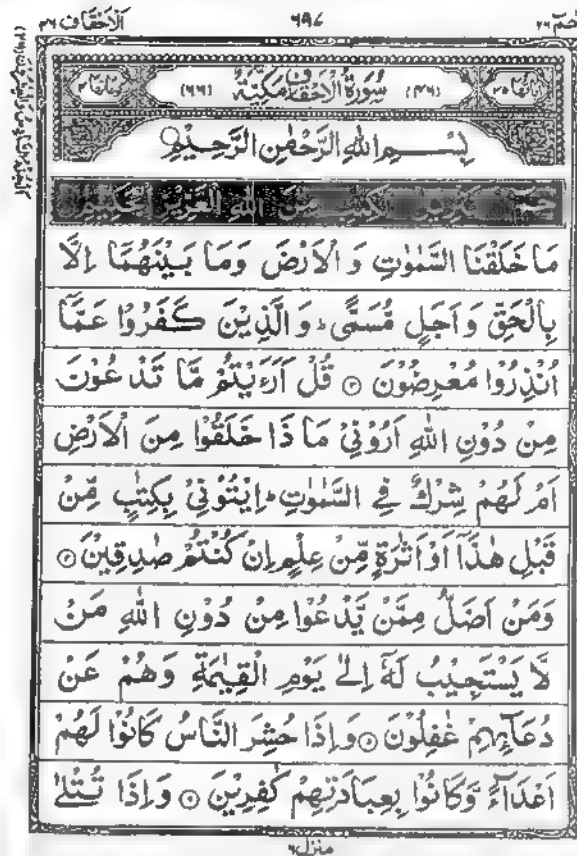 حٰمٓ ٢٦ ٦٩٨ اَلْاَحْقَاف ٤٦
اٰيَاتُهَا ٣٥ (٤٦) سُوْرَةُ الْاَحْقَافِ مَكِّيَّةٌ (٦٦)
بِسْــــمِ اللّٰهِ الرَّحْمٰنِ الرَّحِيْمِ
اللّٰهِ الْعَزِيْزِ الْحَكِيْمِ
مَا خَلَقْنَا السَّمٰوٰتِ وَ الْاَرْضَ وَمَا بَيْنَهُمَآ اِلَّا
بِالْحَقِّ وَ اَجَلٍ مُّسَمًّى ؕ وَ الَّذِيْنَ كَفَرُوْا عَمَّآ
اُنْذِرُوْا مُعْرِضُوْنَ ۝٣ قُلْ اَرَءَيْتُمْ مَّا تَدْعُوْنَ
مِنْ دُوْنِ اللّٰهِ اَرُوْنِيْ مَا ذَا خَلَقُوْا مِنَ الْاَرْضِ
اَمْ لَهُمْ شِرْكٌ فِي السَّمٰوٰتِ ؕ اِيْتُوْنِيْ بِكِتٰبٍ مِّنْ
قَبْلِ هٰذَآ اَوْ اَثٰرَةٍ مِّنْ عِلْمٍ اِنْ كُنْتُمْ صٰدِقِيْنَ ۝٤
وَمَنْ اَضَلُّ مِمَّنْ يَّدْعُوْا مِنْ دُوْنِ اللّٰهِ مَنْ
لَّا يَسْتَجِيْبُ لَهٗٓ اِلٰى يَوْمِ الْقِيٰمَةِ وَهُمْ عَنْ
دُعَآىِٕهِمْ غٰفِلُوْنَ ۝٥ وَ اِذَا حُشِرَ النَّاسُ كَانُوْا لَهُمْ
اَعْدَآءً وَّ كَانُوْا بِعِبَادَتِهِمْ كٰفِرِيْنَ ۝٦ وَ اِذَا تُتْلٰى
منزل ٦